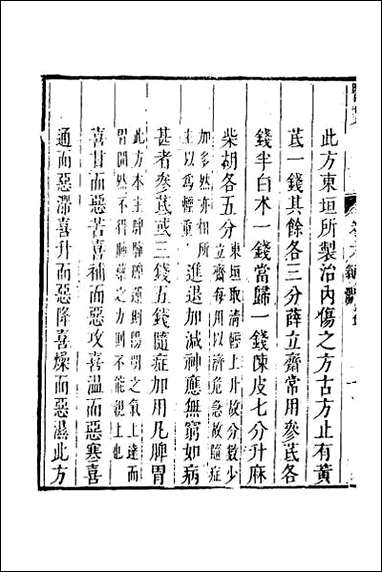 此方東垣所製治內傷之方古方止有黃
芪一錢其餘各三分薛立齋常用參芪各
錢半白朮一錢當歸一錢陳皮七分升麻
柴胡各五分東垣取清輕上升故分數少立齋每用以許危急故隨症
加多然亦相所主以爲輕重進退加減神應無窮如病
甚者參芪或三錢五錢隨症加用凡脾胃
此方本主脾脾健運則陽明之氣上達而胃開然不得參之力則不能上也
喜甘而惡苦喜補而惡攻喜溫而惡寒喜
通而惡滯喜升而惡降喜燥而惡濕此方